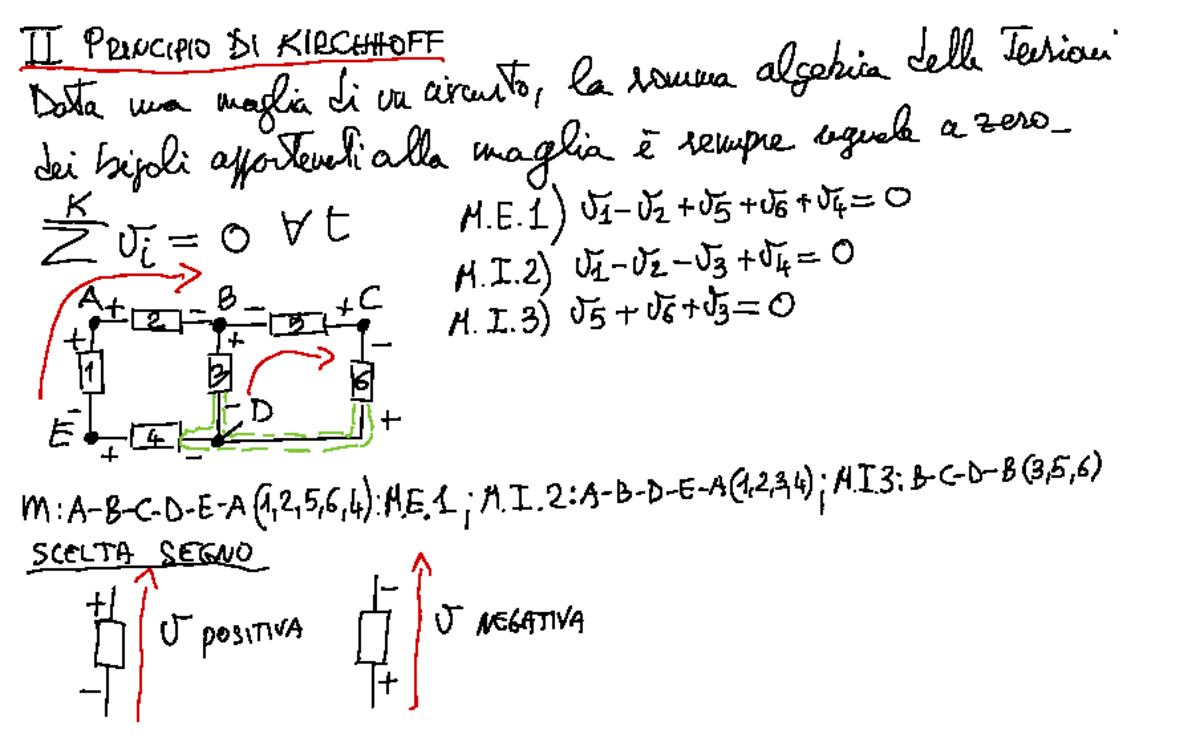 II PRINCIPIO DI KIRCHHOFF
Data una maglia di un circuito, la somma algebrica delle Tensioni
dei bipoli appartenenti alla maglia è sempre uguale a zero_
K
Σ vi = 0 ∀ t
M.E.1) v1-v2+v5+v6+v4=0
M.I.2) v1-v2-v3+v4=0
M.I.3) v5+v6+v3=0
A + 2 - B - 5 + C
+ + -
1 3 6
- - D +
E + 4 -
m: A-B-C-D-E-A (1,2,5,6,4): M.E.1; M.I.2: A-B-D-E-A (1,2,3,4); M.I.3: B-C-D-B (3,5,6)
SCELTA SEGNO
+ - v POSITIVA
- + v NEGATIVA